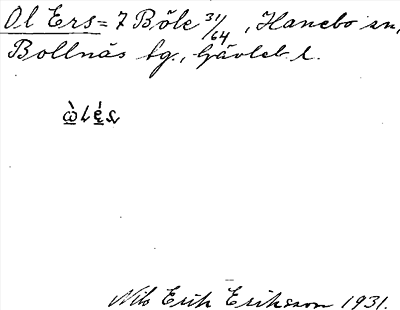 Ol Ers = 7 Böle 31/64, Hanebo sn,
Bollnäs tg., Gävleb l.
Nils Erik Eriksson 1931.